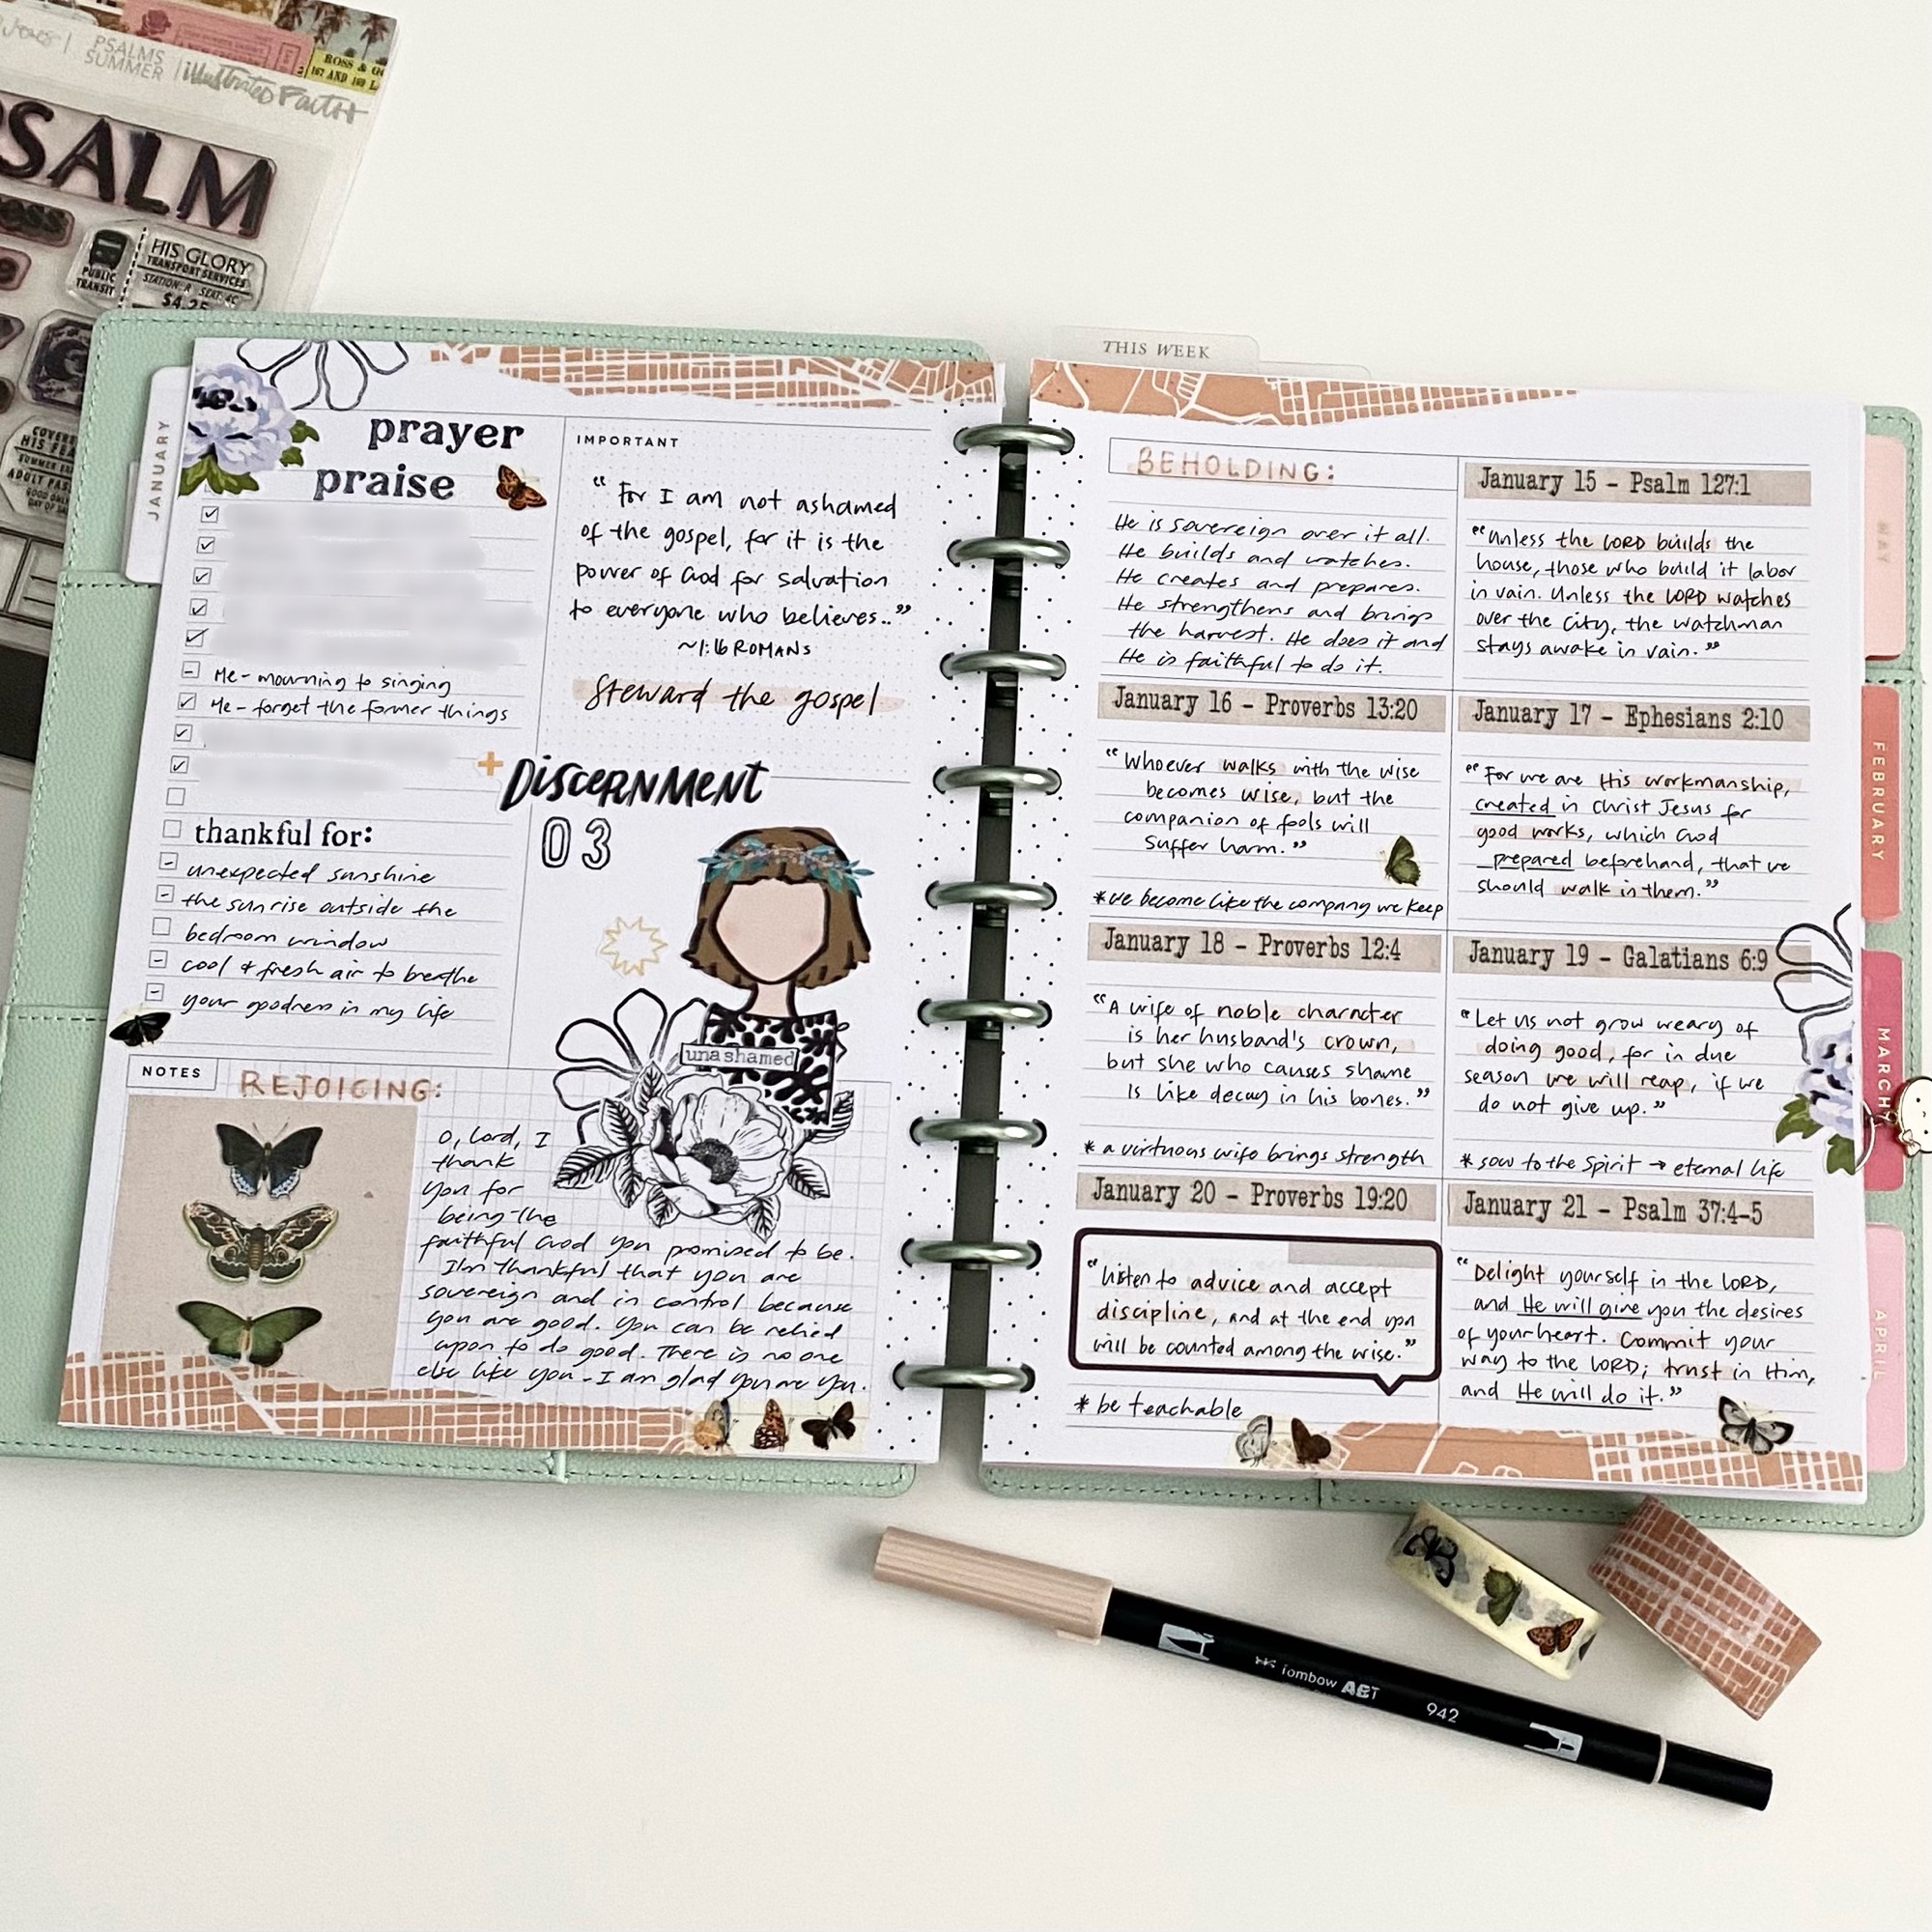 PSALMS
SUMMER
illustrated Faith
ROSS & G
167 AND 169 L
PSALM
HIS GLORY
TRANSPORT SERVICES
STATION-R SEAT-4C
$4.25
PUBLIC
TRANSIT
JANUARY
prayer
praise
Me - mourning to singing
Me - forget the former things
thankful for:
unexpected sunshine
the sunrise outside the
bedroom window
cool & fresh air to breathe
your goodness in my life
IMPORTANT
"For I am not ashamed
of the gospel, for it is the
power of God for salvation
to everyone who believes..."
~1:16 ROMANS
Steward the gospel
+ DISCERNMENT
03
unashamed
NOTES
REJOICING:
O, Lord, I
thank
you for
being the
faithful God you promised to be.
I'm thankful that you are
sovereign and in control because
you are good. You can be relied
upon to do good. There is no one
else like you - I am glad you are you.
THIS WEEK
BEHOLDING:
He is sovereign over it all.
He builds and watches.
He creates and prepares.
He strengthens and brings
the harvest. He does it and
He is faithful to do it.
January 15 - Psalm 127:1
"Unless the LORD builds the
house, those who build it labor
in vain. Unless the LORD watches
over the City, the watchman
stays awake in vain."
January 16 - Proverbs 13:20
"Whoever walks with the wise
becomes wise, but the
companion of fools will
suffer harm."
*we become like the company we keep
January 17 - Ephesians 2:10
"For we are His workmanship,
created in Christ Jesus for
good works, which God
prepared beforehand, that we
should walk in them."
January 18 - Proverbs 12:4
"A wife of noble character
is her husband's crown,
but she who causes shame
is like decay in his bones."
* a virtuous wife brings strength
January 19 - Galatians 6:9
"Let us not grow weary of
doing good, for in due
season we will reap, if we
do not give up."
* sow to the Spirit → eternal life
January 20 - Proverbs 19:20
"Listen to advice and accept
discipline, and at the end you
will be counted among the wise."
* be teachable
January 21 - Psalm 37:4-5
"Delight yourself in the LORD,
and He will give you the desires
of your heart. Commit your
way to the LORD; trust in Him,
and He will do it."
MAY
FEBRUARY
MARCH
APRIL
Tombow ABT
942